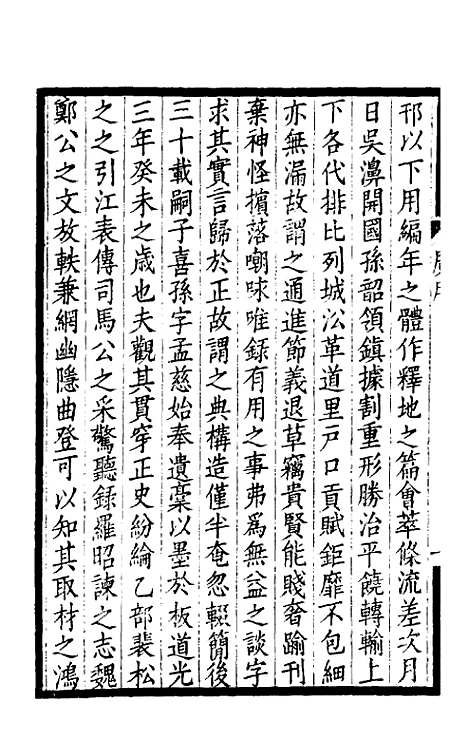 邗以下用編年之體作釋地之篇會萃條流差次月
日吳濞開國孫韶領鎮據割重形勝治平饒轉輸上
下各代排比列城㳂革道里戸口貢賦鉅靡不包細
亦無漏故謂之通進節義退草竊貴賢能賤奢踰刋
棄神怪擯落嘲咏唯録有用之事弗爲無益之談字
求其實言歸於正故謂之典構造僅半奄忽輟簡後
三十載嗣子喜孫字孟慈始奉遺稾以墨於板道光
三年癸未之歳也夫觀其貫穿正史紛綸乙部裴松
之之引江表傳司馬公之采驚聽録羅昭諫之志魏
鄭公之文放軼兼網幽隱曲登可以知其取材之鴻